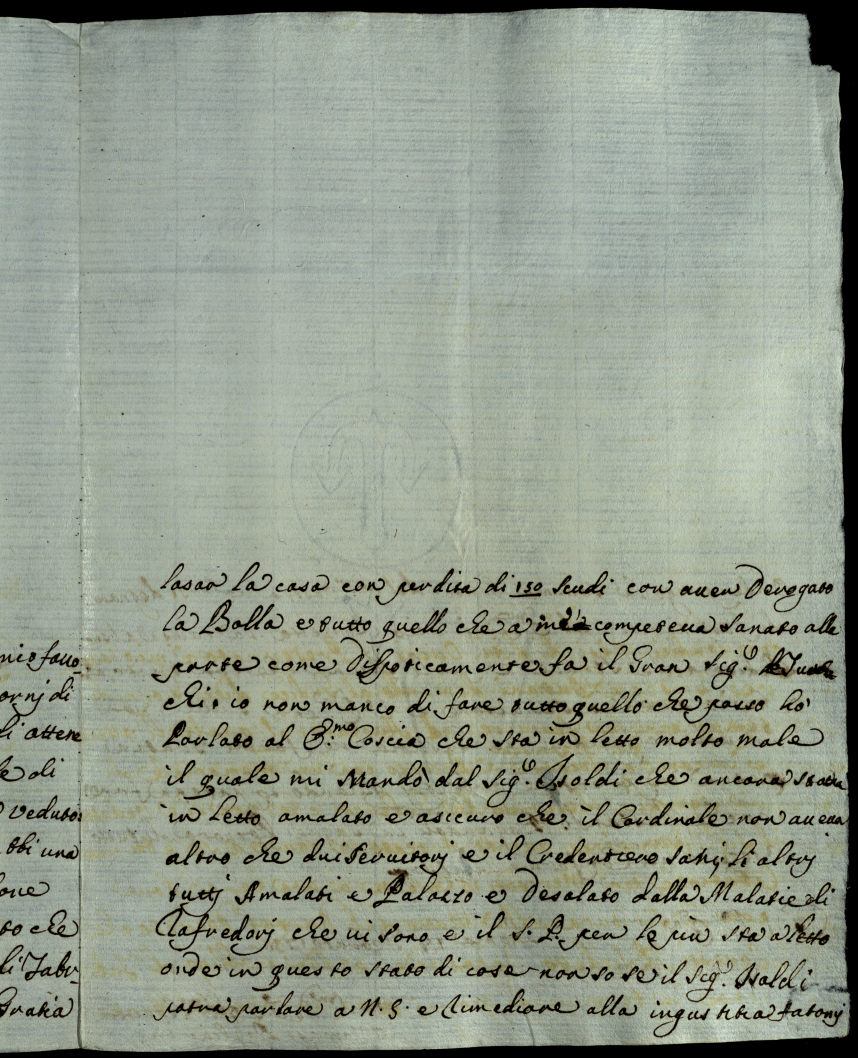 mie fauo
orni di
li attene
le di
veduto
bbi una
one
to che
li Tabr-
Gratia
lasar la casa con perdita di 150 scudi con auer Derogato
la Bolla e tutto quello che a me competeua sanato alle
parte come Dispoticamente fa il Gran Sig.e de Turchi
chi: io non manco di fare tutto quello che posso ho
Parlato al E.mo Coscia che sta in letto molto male
il quale mi Mandò dal Sig.e Isoldi che ancora staua
in letto amalato e asicuro che il Cardinale non aueua
altro che dui Seruitorj e il Credentiero sanj, li altrj
tuttj Amalati e Palazzo e Desolato dalla Malatie di
Rafredorj che ui sono e il S. P. per le più sta a letto
onde in questo stato di cose non so se il Sig.e Isoldi
potra parlare a N. S. e Rimediare alla ingiustitia fatomj